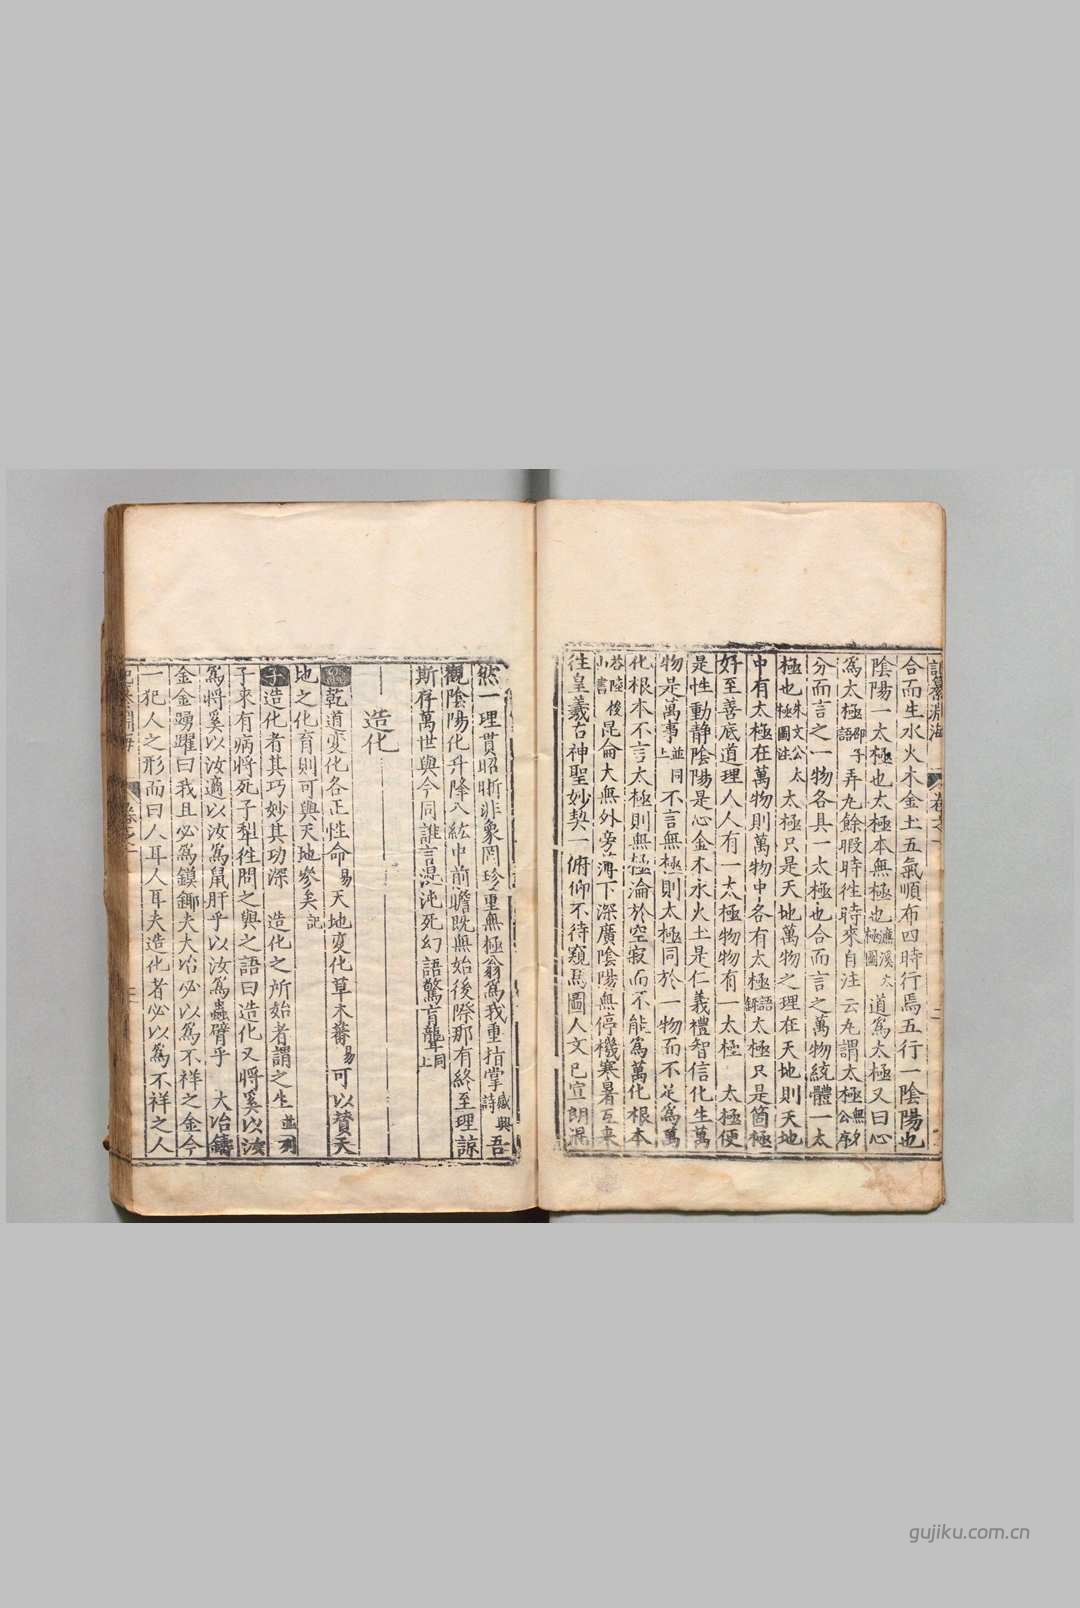 記纂淵海　卷之一
合而生水火木金土五氣順布四時行焉五行一陰陽也
陰陽一太極也太極本無極也濂溪太極圖　道爲太極又曰心
爲太極邵子語　弄丸餘暇時徃時來自注云丸謂太極
分而言之一物各具一太極也合而言之萬物統體一太
極也朱文公太極圖註　太極只是天地萬物之理在天地則天地
中有太極在萬物則萬物中各有太極語錄　太極只是箇極
好至善底道理人人有一太極物物有一太極　太極便
是性動靜陰陽是心金木水火土是仁義禮智信化生萬
物是萬事並同上　不言無極則太極同於一物而不足爲萬
化根本不言太極則無極淪於空寂而不能爲萬化根本
荅陸山書　後昆侖大無外旁薄下深廣陰陽無停機寒暑互來
往皇羲古神聖妙契一俯仰不待窺馬圖人文已宣朗渾
然一理貫昭晣非象罔珍重無極翁爲我重指掌感興詩　吾
觀陰陽化升降八紘中前瞻旣無始後際那有終至理諒
斯存萬世與今同誰言混沌死幻語驚盲聾同上
造化
乾道變化各正性命易　天地變化草木蕃易　可以贊天
地之化育則可與天地參矣記
子　造化者其巧妙其功深　造化之所始者謂之生並列
子來有病將死子犁徃問之與之語曰造化又將奚以汝
爲將奚以汝適以汝爲鼠肝乎以汝爲蟲臂乎　大冶鑄
金金踴躍曰我且必爲鏌鋣夫大冶必以爲不祥之金今
一犯人之形而曰人耳人耳夫造化者必以爲不祥之人
記纂淵海　卷之一
gujiku.com.cn